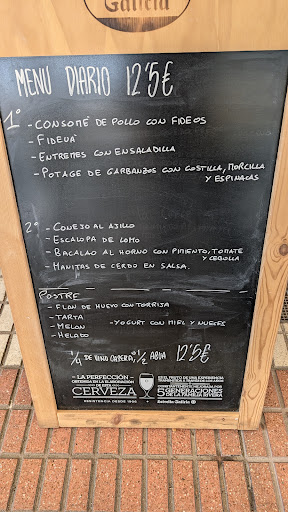 Galicia
MENÚ DIARIO 12'5€
1º
- CONSOMÉ DE POLLO CON FIDEOS
- FIDEUÁ
- ENTREMES CON ENSALADILLA
- POTAGE DE GARBANZOS CON COSTILLA, MORCILLA
Y ESPINACAS
2º
- CONEJO AL AJILLO
- ESCALOPA DE LOMO
- BACALAO AL HORNO CON PIMIENTO, TOMATE
Y CEBOLLA
- MANITAS DE CERDO EN SALSA.
POSTRE
- FLAN DE HUEVO CON TORRIJA
- TARTA
- MELON
- YOGURT CON MIEL Y NUECES
- HELADO
1/4 DE VINO O 1/2 AGUA 12'5€
LA PERFECCIÓN
OBTENIDA EN LA ELABORACIÓN
DE NUESTRA
CERVEZA
RESISTENCIA DESDE 1906
ES EL FRUTO DE UNA EXPERIENCIA
5 GENERACIONES
DE LA FAMILIA RIVERA
Estrella Galicia